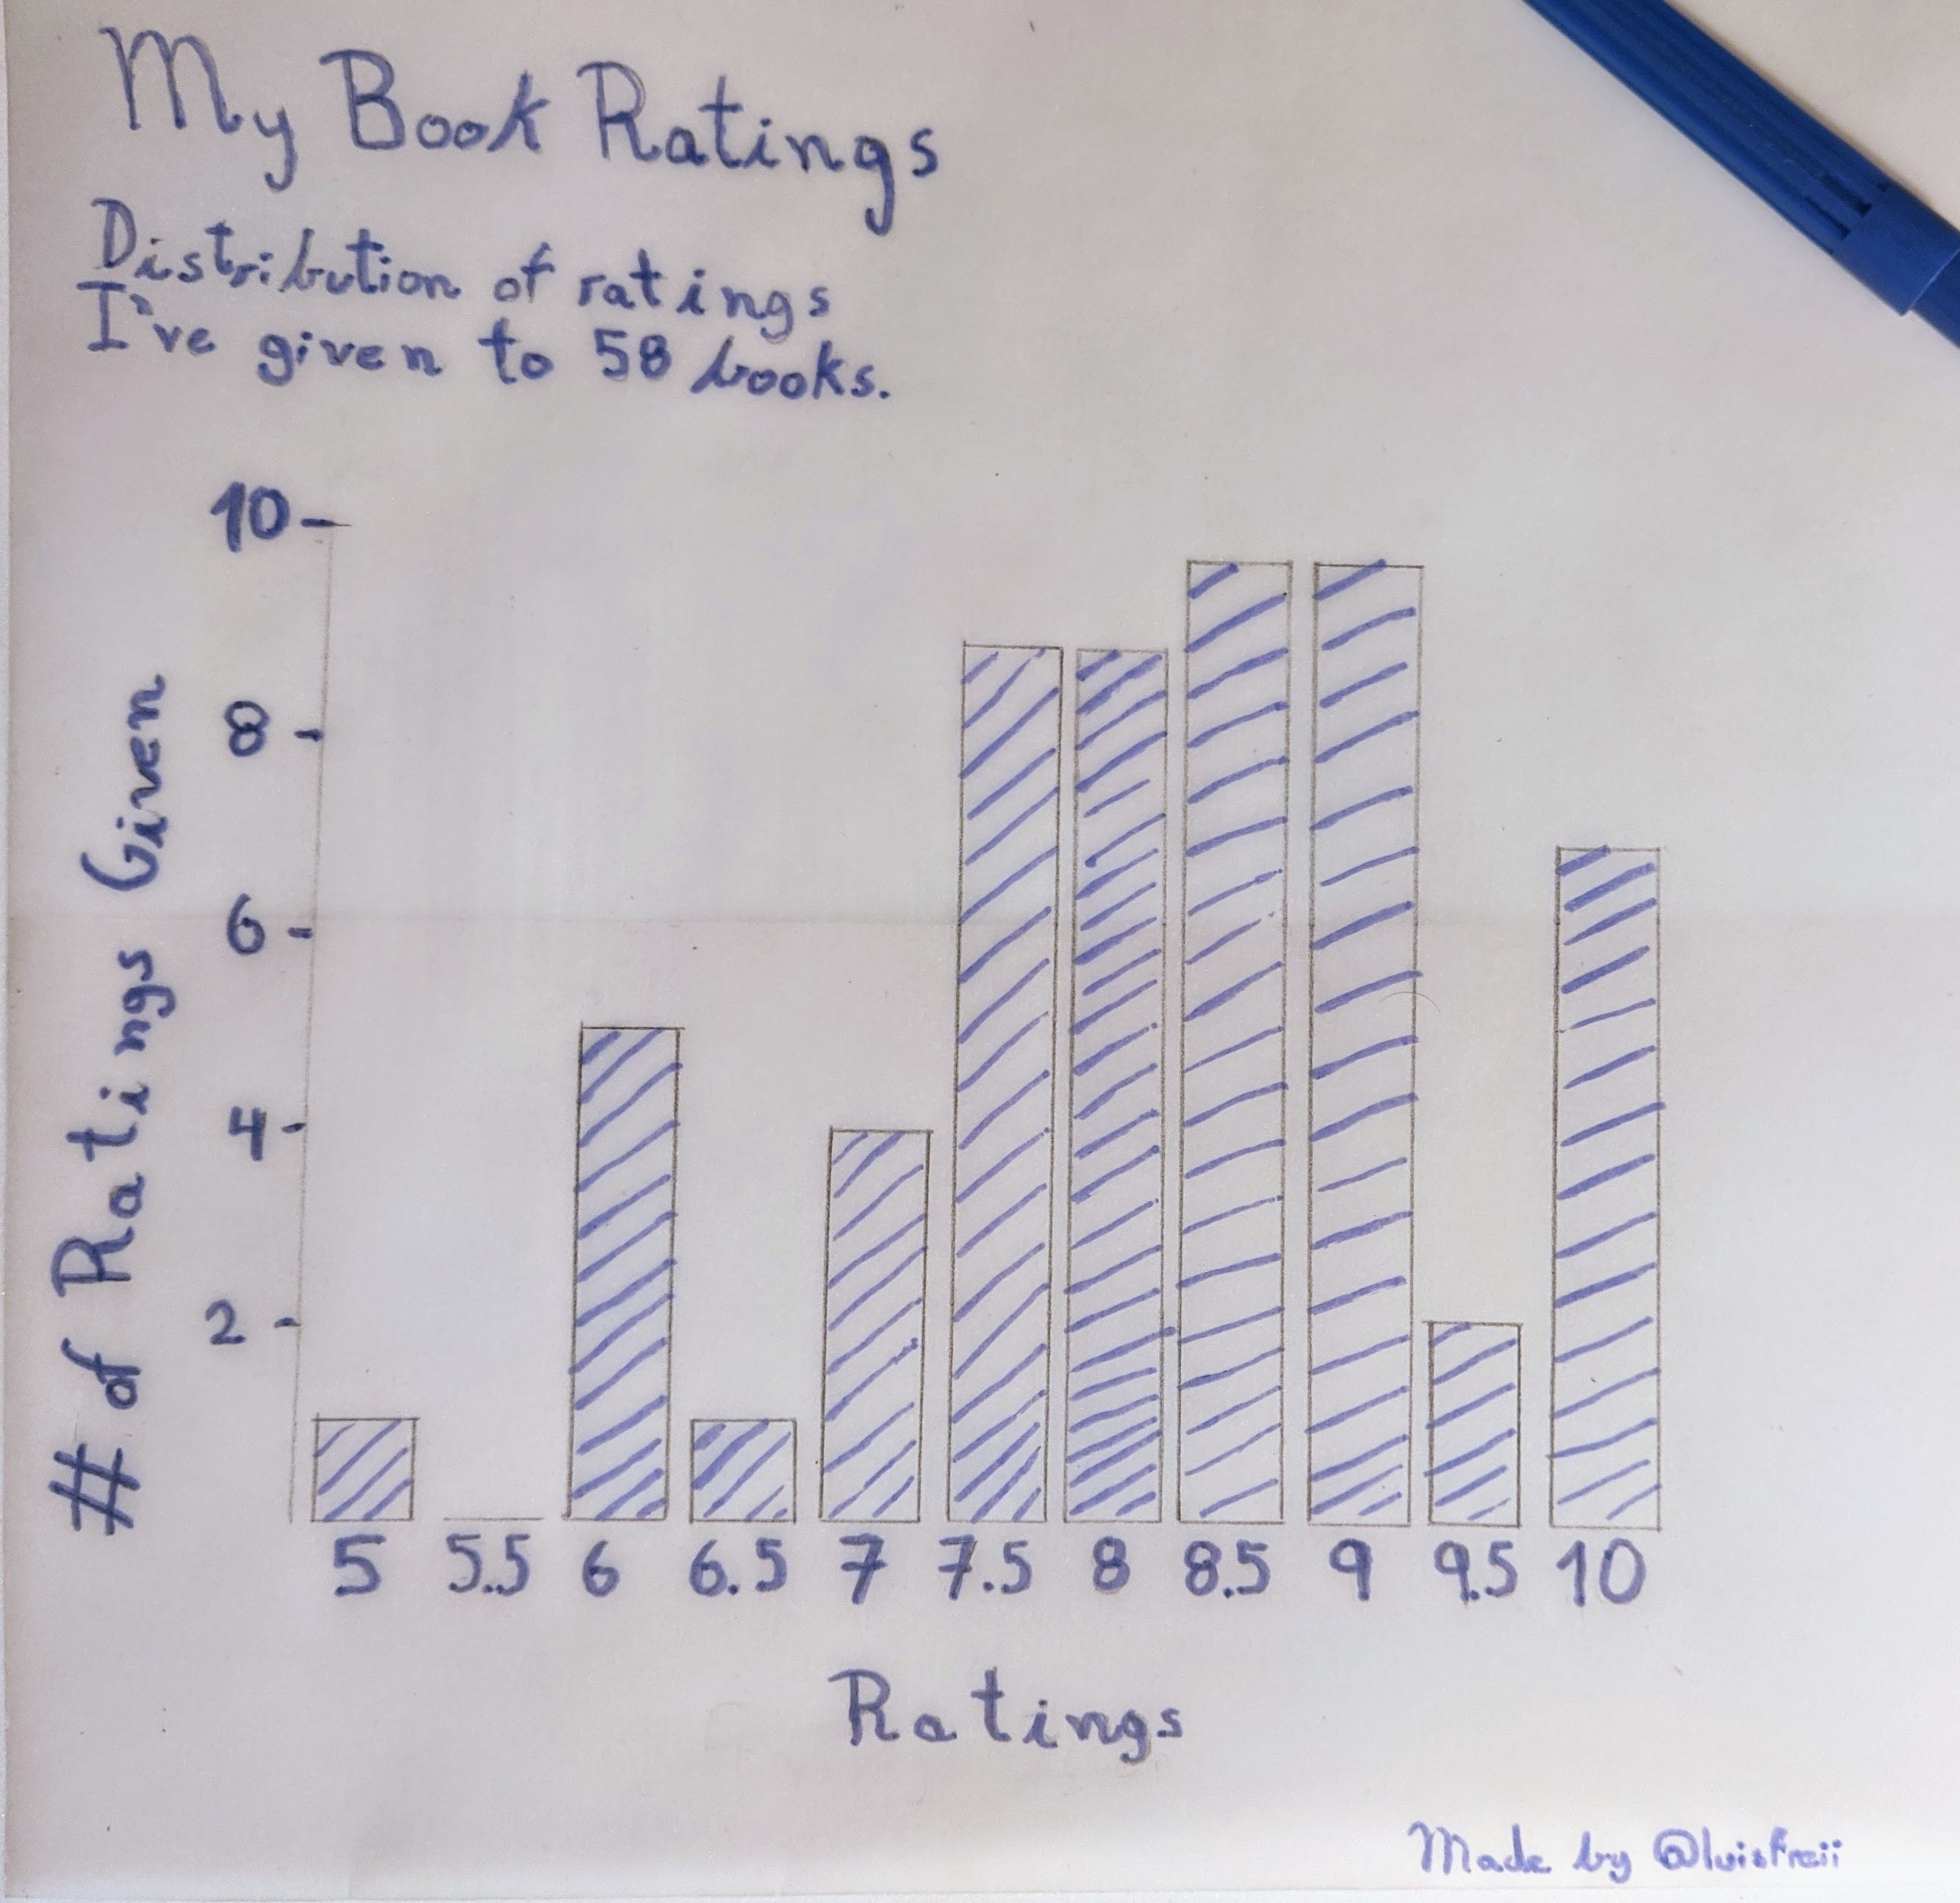 My Book Ratings
Distribution of ratings
I've given to 58 books.
10
8
6
4
2
# of Ratings Given
5 5.5 6 6.5 7 7.5 8 8.5 9 9.5 10
Ratings
Made by @luisfreii